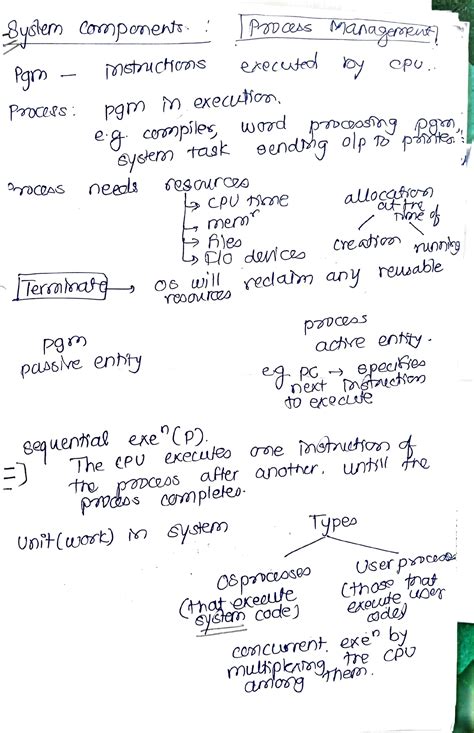 System Components : Process Management
Pgm — instructions executed by CPU.
Process : pgm in execution.
e.g. compiler, word processing pgm,
system task sending o/p to printer.
Process needs resources
→ CPU time
→ memʳ
→ files
→ I/O devices
allocation
at the
time of
creation running
Terminate → OS will reclaim any reusable
resources
pgm
passive entity
process
active entity.
eg. PC → specifies
next instruction
to execute
sequential exeⁿ (P).
The CPU executes one instruction of
the process after another, untill the
process completes.
Unit (work) in system
Types
OS processes
(that execute
system code)
User processes
(those that
execute user
code)
concurrent exeⁿ by
multiplexing the CPU
among them.